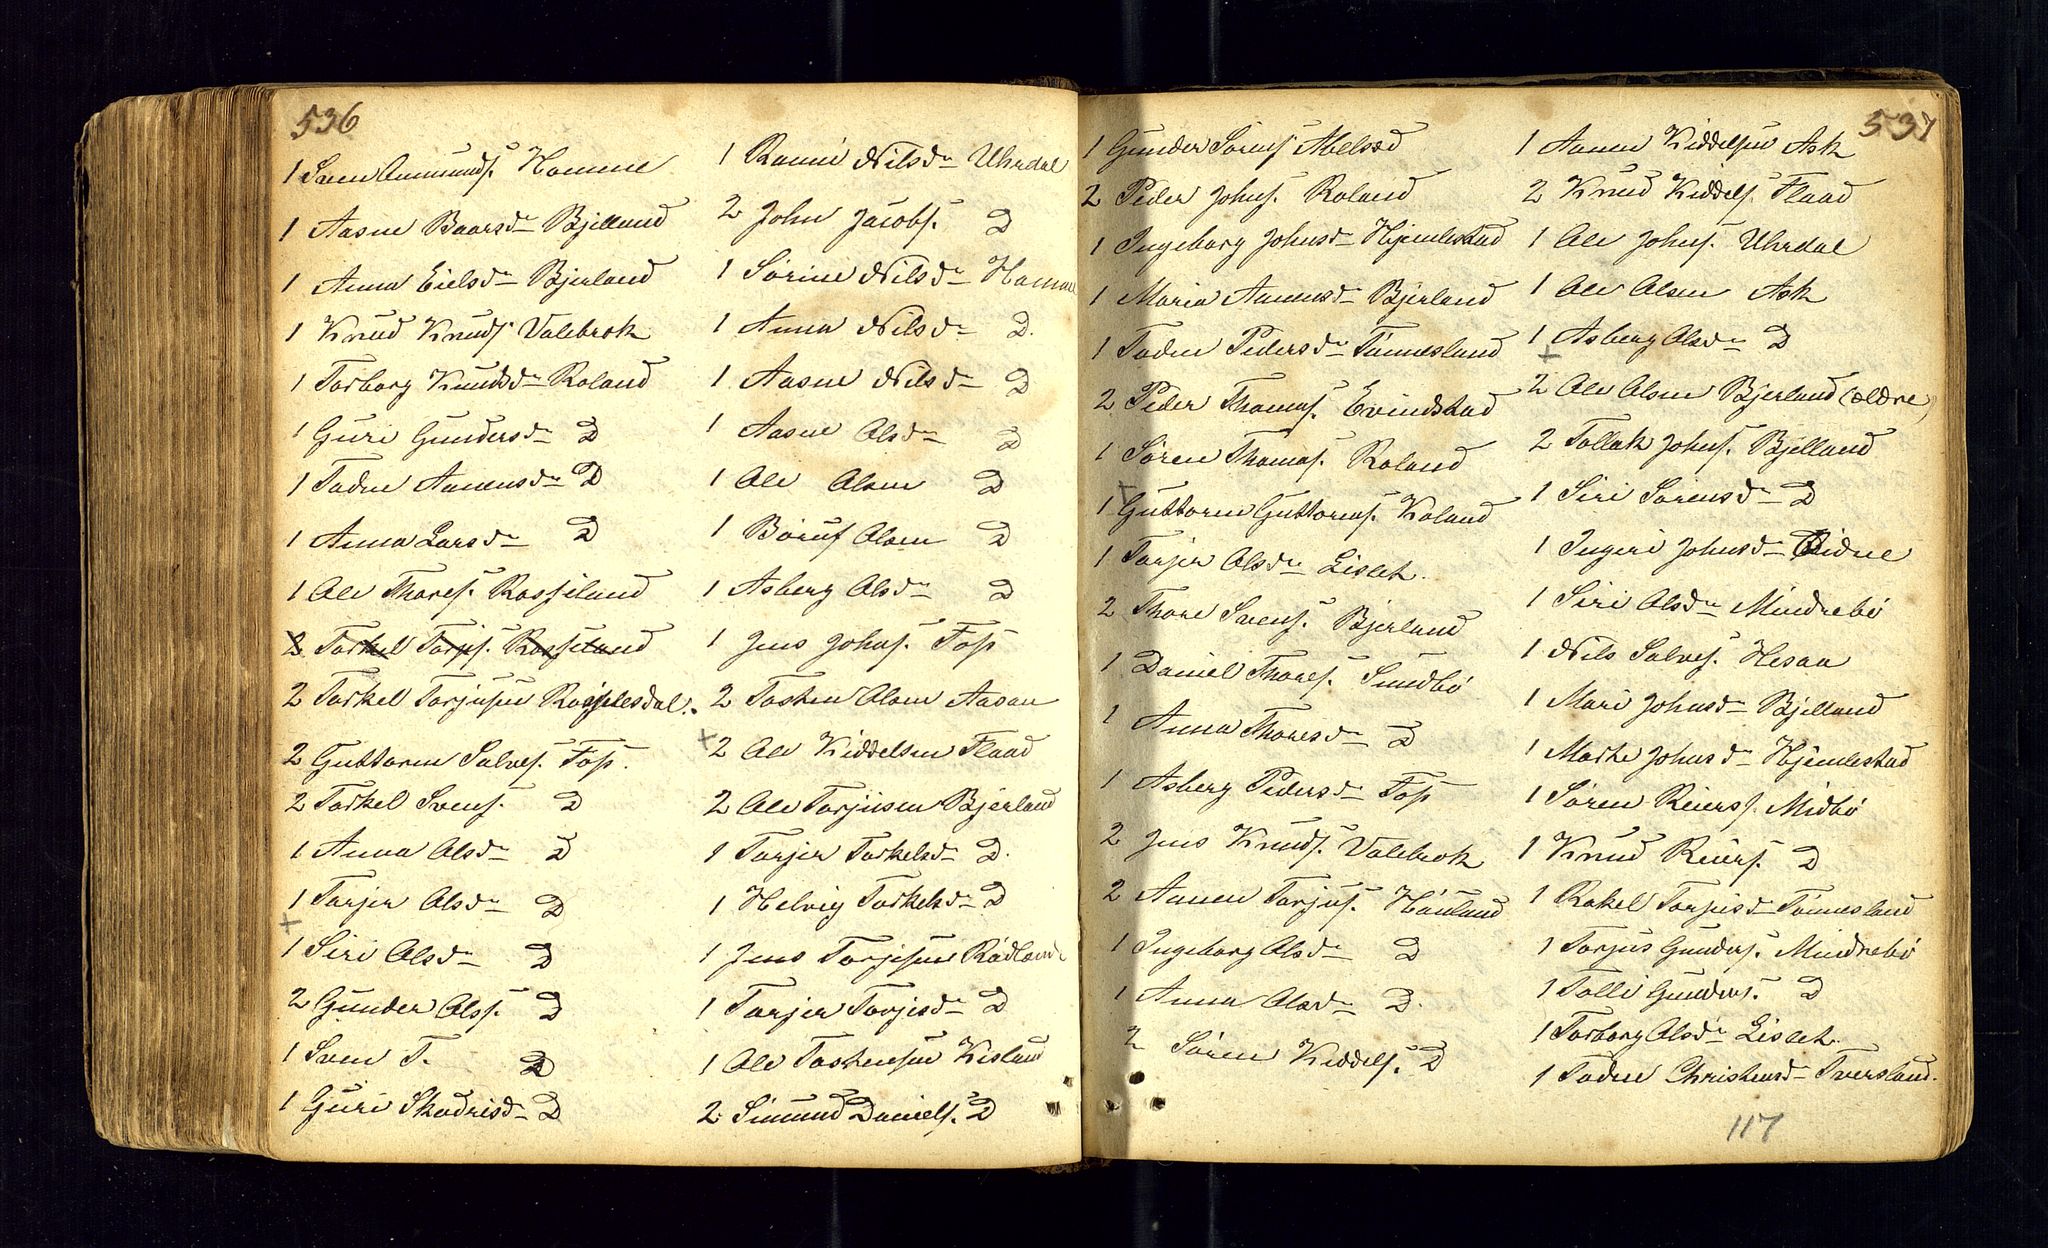 536
1 Sven Aanunds. Homme
1 Aasne Baarsdr Bjelland
1 Anna Eielsdr Bjerland
1 Knud Knuds. Valebrok
1 Torborg Knudsdr Roland
1 Guri Gundersdr D
1 Todne Aanensdr D
1 Anna Larsdr D
1 Ole Thores. Rossiland
2 Torkel Torjs. Rossiland
2 Torkel Torjusen Rossilesdal.
2 Guttorm Salves. Foss.
2 Torkel Svens. D
1 Anna Olsdr D
1 Torjer Olsdr D
1 Siri Olsdr D
2 Gunder Olss. D
1 Sven T. D
1 Guri Skadrisdr D
1 Ronni Nilsdr Uhrdal
2 John Jacobs. D
1 Sørine Nilsdr Homme
1 Anna Nilsdr D.
1 Aasne Nilsdr D
1 Aasne Olsdr D
1 Ole Olsen D
1 Børuf Olsen D
1 Asberg Olsdr D
1 Jens Johns. Foss
2 Tosten Olsen Aasen
2 Ole Kiddelsen Flaad
2 Ole Torjusen Bjerland
1 Torjer Torkelsdr D.
1 Helvig Torkelsdr D
1 Jens Torjusen Rødland
1 Torjer Torjusdr D
1 Ole Tostensen Kisland
2 Simund Daniels. D
537
1 Gunder Sørens. Abelsæd
2 Peder Johns. Roland
1 Ingeborg Johnsdr Hjemlestad
1 Maria Aanensdr Bjerland
1 Todne Pedersdr Tønnesland
2 Peder Thomas. Evindstad
1 Søren Thomas. Roland
1 Guttorm Guttorms. Roland
1 Torjer Olsdr Lislet.
2 Thore Svens. Bjerland
1 Daniel Thores. Sundbø
1 Anna Thoresdr D
1 Asberg Pedersdr Foss
2 Jens Knuds. Valebrok
2 Aanen Torjus. Houland
1 Ingeborg Olsdr D
1 Anna Olsdr D.
2 Søren Kiddels. D
1 Aanen Kiddelsen Ask
2 Knud Kiddels. Flaad
1 Ole Johns. Uhrdal
1 Ole Olsen Ask
1 Asberg Olsdr D
2 Ole Olsen Bjerland (ældre)
2 Tollak Johns. Bjelland
1 Siri Sørensdr D
1 Ingeri Johnsdr Eidne
1 Siri Olsdr Mindrebø
1 Nils Salves. Hesaa
1 Mari Johnsdr Bjelland
1 Marte Johnsdr Hjemlestad
1 Søren Reiers. Midbø
1 Knud Reiers. D
1 Rakel Torjusdr Tønnesland
1 Torjus Gunders. Mindrebø
1 Tolli Gunders. D
1 Torborg Olsdr Lislet.
1 Todne Christensdr Tversland.
117